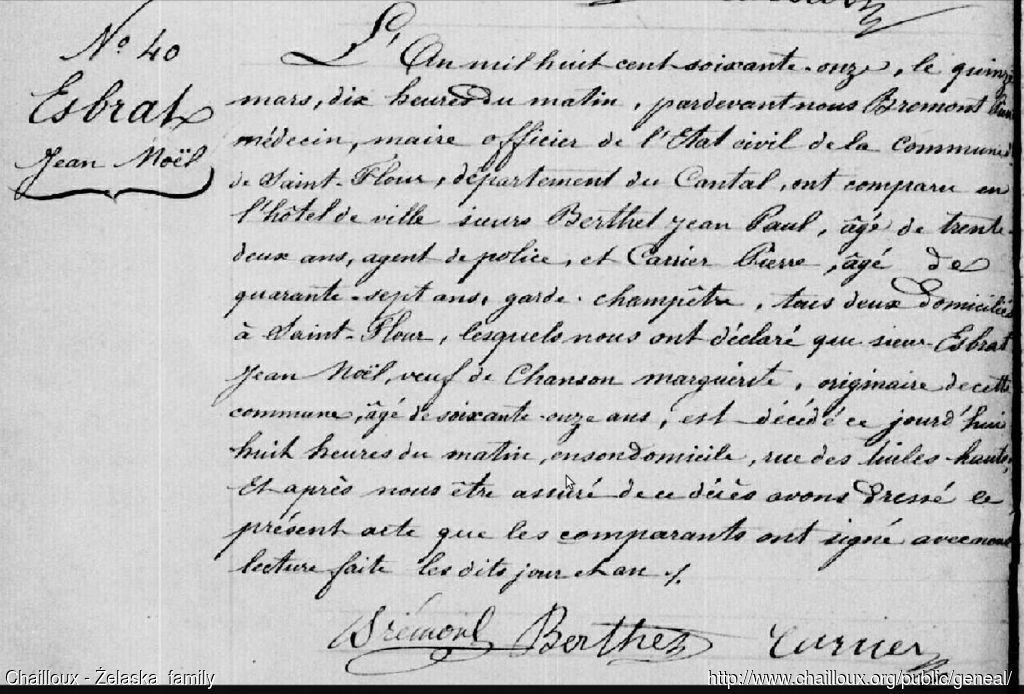 N° 40
Esbrat
Jean Noël
L'An mil huit cent soixante-onze, le quinze
mars, dix heures du matin, pardevant nous Bremont
médecin, maire officier de l'Etat civil de la commune
de Saint-Flour, département du Cantal, ont comparu en
l'hôtel de ville sieurs Berthet Jean Paul, âgé de trente-
deux ans, agent de police, et Carrier Pierre, âgé de
quarante-sept ans, garde-champêtre, tous deux domiciliés
à Saint-Flour, lesquels nous ont déclaré que sieur Esbrat
Jean Noël, veuf de Chanson marguerite, originaire de cette
commune, âgé de soixante-onze ans, est décédé ce jourd'hui
huit heures du matin, en son domicile, rue des tuiles-hautes,
Et après nous être assuré de ce décès avons dressé le
présent acte que les comparants ont signé avec nous
lecture faite les dits jour et an ./.
Brémont Berthet Carrier
Chailloux - Żelaska family
http://www.chailloux.org/public/geneal/